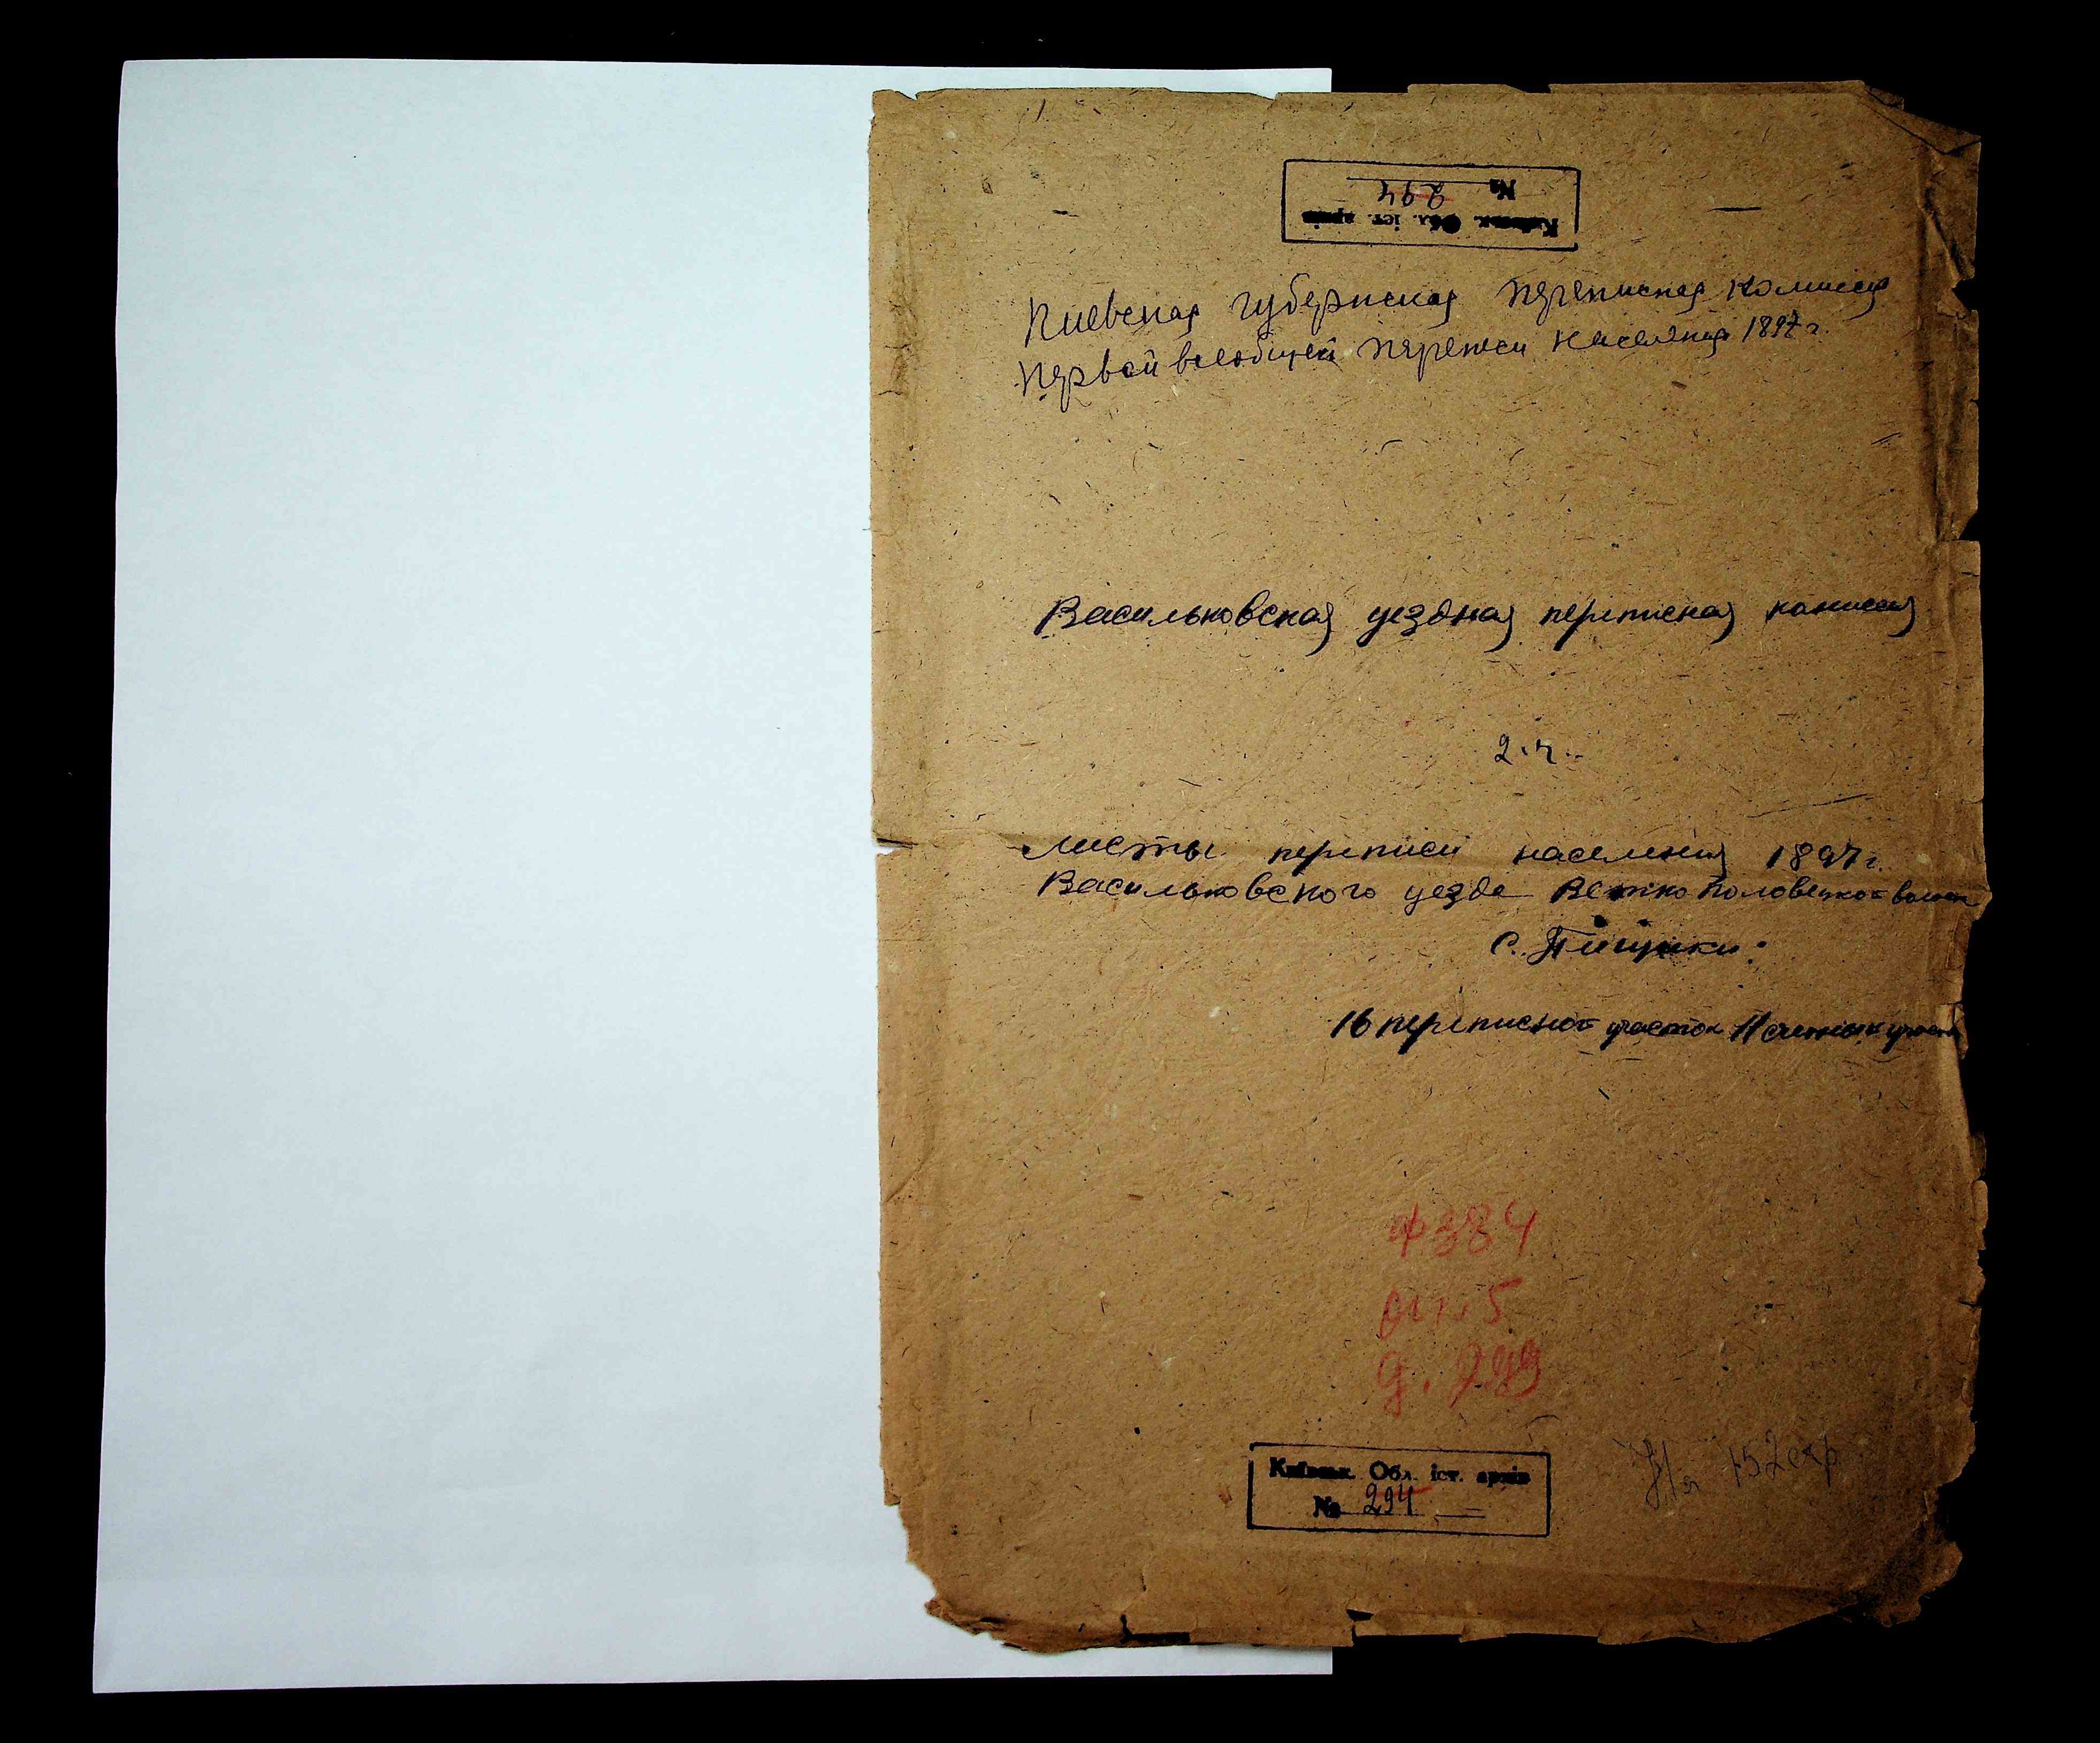 Київськ. Обл. іст. архів
№ 294
Киевская губернская переписная комиссия
первой всеобщей переписи населения 1897 г.
Васильковская уездная переписная комиссия
2.ч.
Листы переписи населения 1897 г.
Васильковского уезда Половецкой волости
с. Пищики
16 переписной участок 11 счетный участок
Ф 384
оп. 5
д. 299
Київськ. Обл. іст. архів
№ 294
На 152